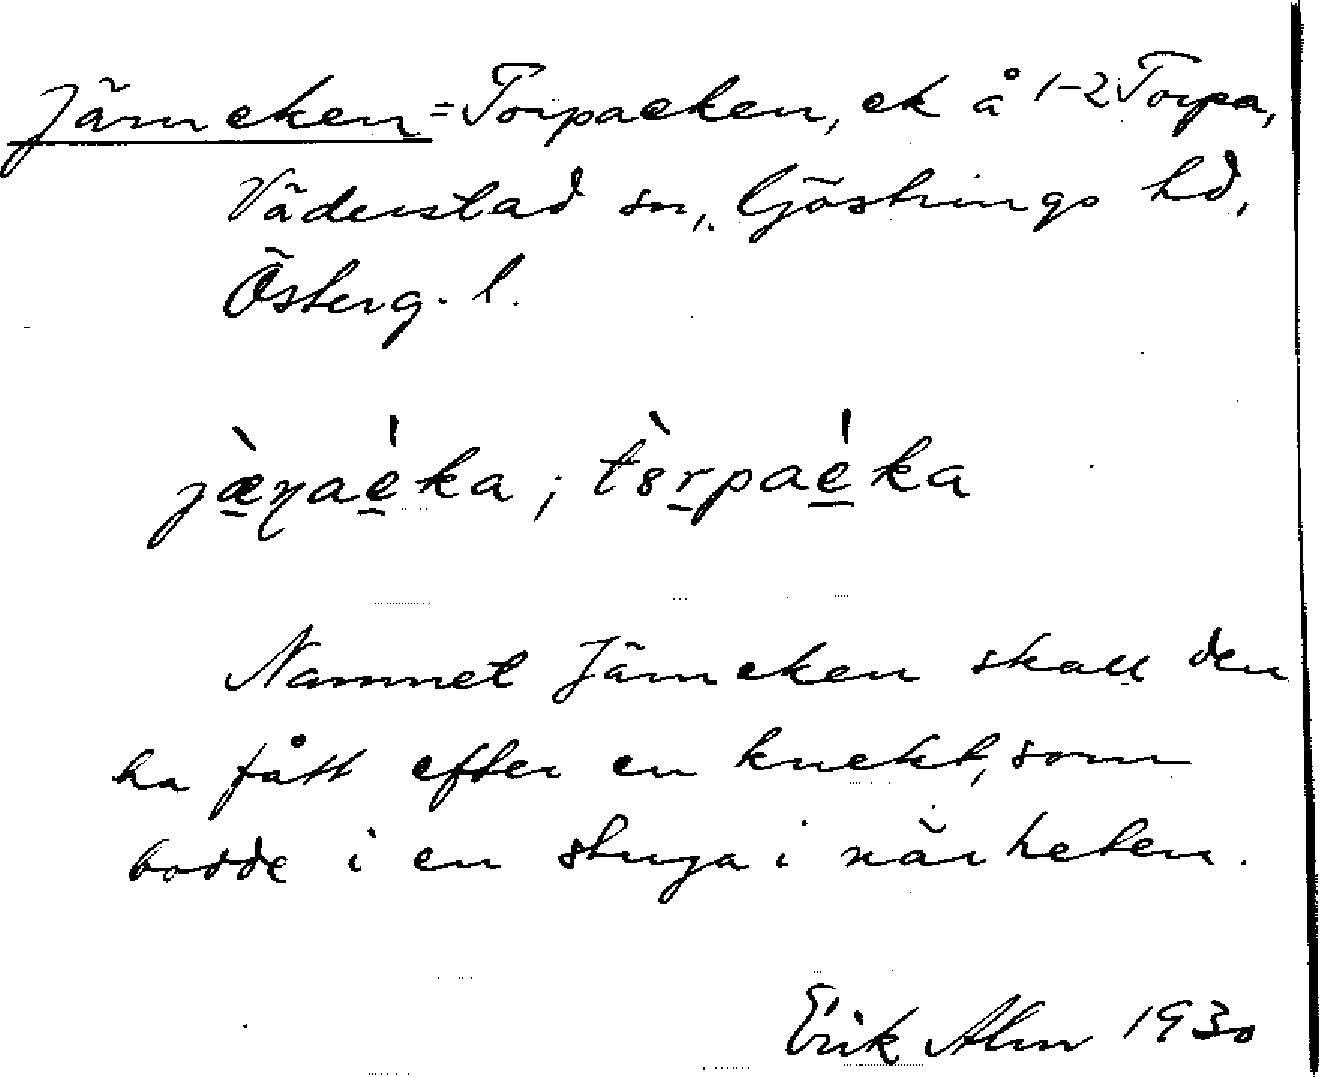 Järneken = Torpaeken, ek å 1-2 Torpa,
Väderstad sn, Göstrings hd,
Österg. l.
jæ̀ṉaéka; tȣ̀rpaéka
Namnet Järneken skall den
ha fått efter en knekt, som
bodde i en stuga i närheten.
Erik Alm 1930